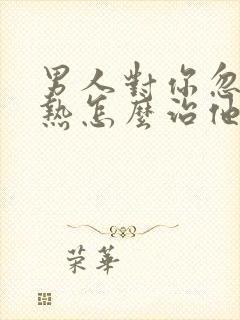 男人對你忽
熱怎麼治他
荣華